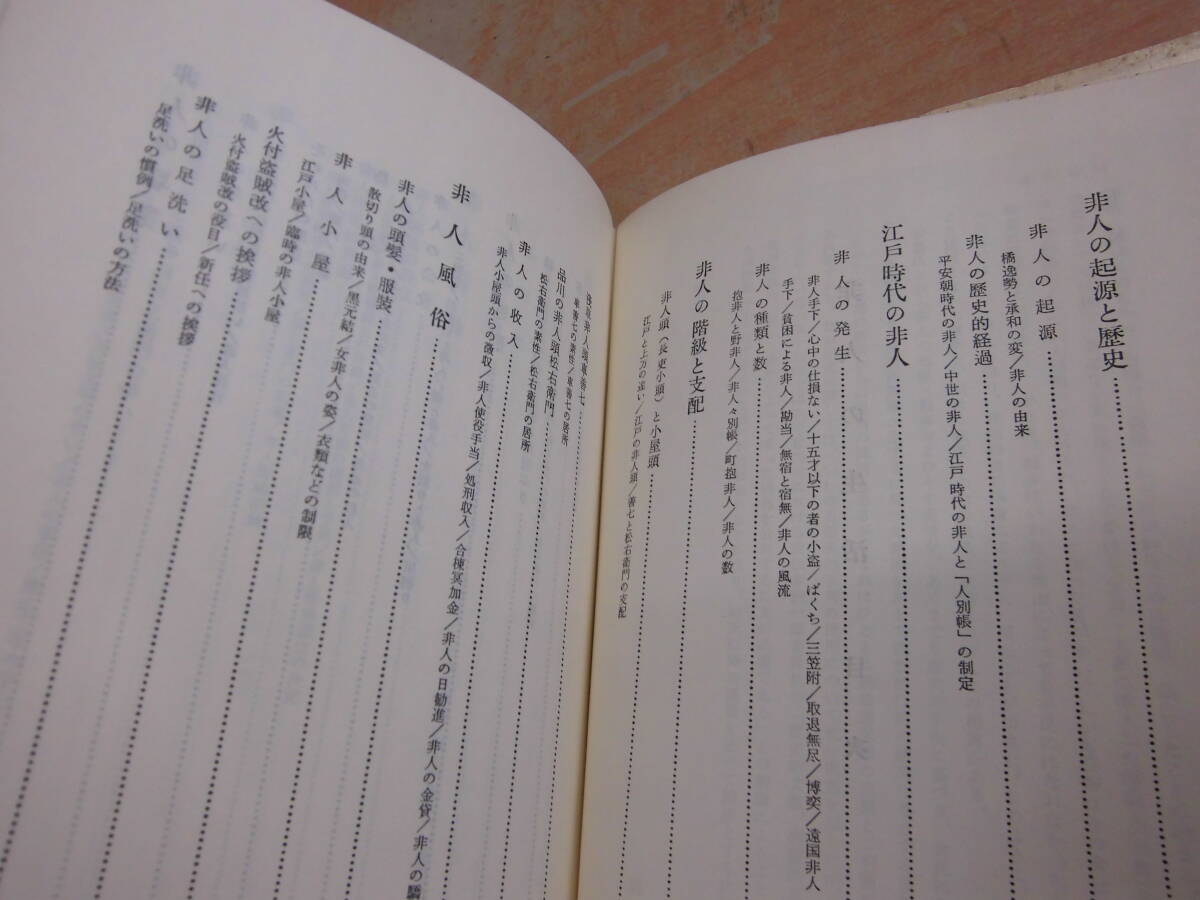 非人の起源と歴史
非人の起源
橘逸勢と承和の変／非人の由来
非人の歴史的経過
平安朝時代の非人／中世の非人／江戸時代の非人と「人別帳」の制定
江戸時代の非人
非人の発生
非人手下／心中の仕損ない／十五才以下の者の小盗／ばくち／三笠附／取退無尽／博奕／遠国非人
手下／貧困による非人／勘当／無宿と宿無／非人の風流
非人の種類と数
抱非人と野非人／非人々別帳／町抱非人／非人の数
非人の階級と支配
非人頭（長吏小頭）と小屋頭
江戸と上方の違い／江戸の非人頭／善七と松右衛門の支配
非人頭車善七
車善七の素性／車善七の居所
品川の非人頭松右衛門
松右衛門の素性／松右衛門の居所
非人の収入
非人小屋頭からの徴収／非人使役手当／処刑収入／合棟冥加金／非人の日勧進／非人の金貸／非人の驕
非人風俗
非人の頭髪・服装
散切り頭の由来／黒元結／女非人の姿／衣類などの制限
非人小屋
江戸小屋／臨時の非人小屋
火付盗賊改への挨拶
火付盗賊改の役目／新任への挨拶
非人の足洗い
足洗いの慣例／足洗いの方法